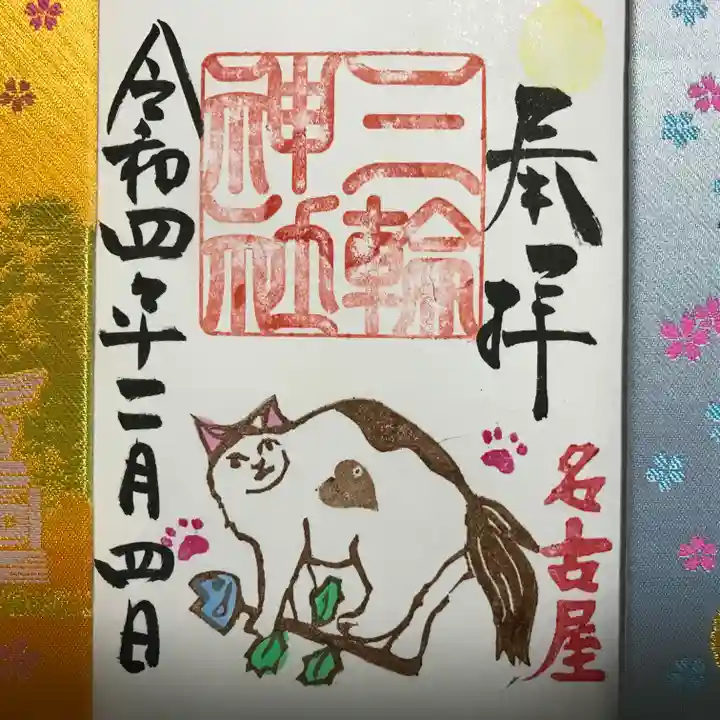 奉拝
三輪
神社
名古屋
令和四年二月四日